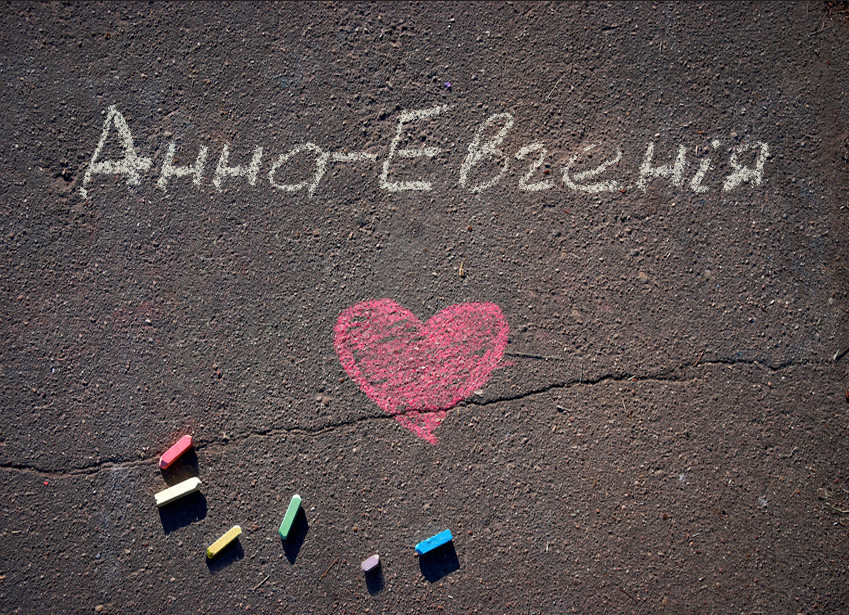 Анна-Евгенія